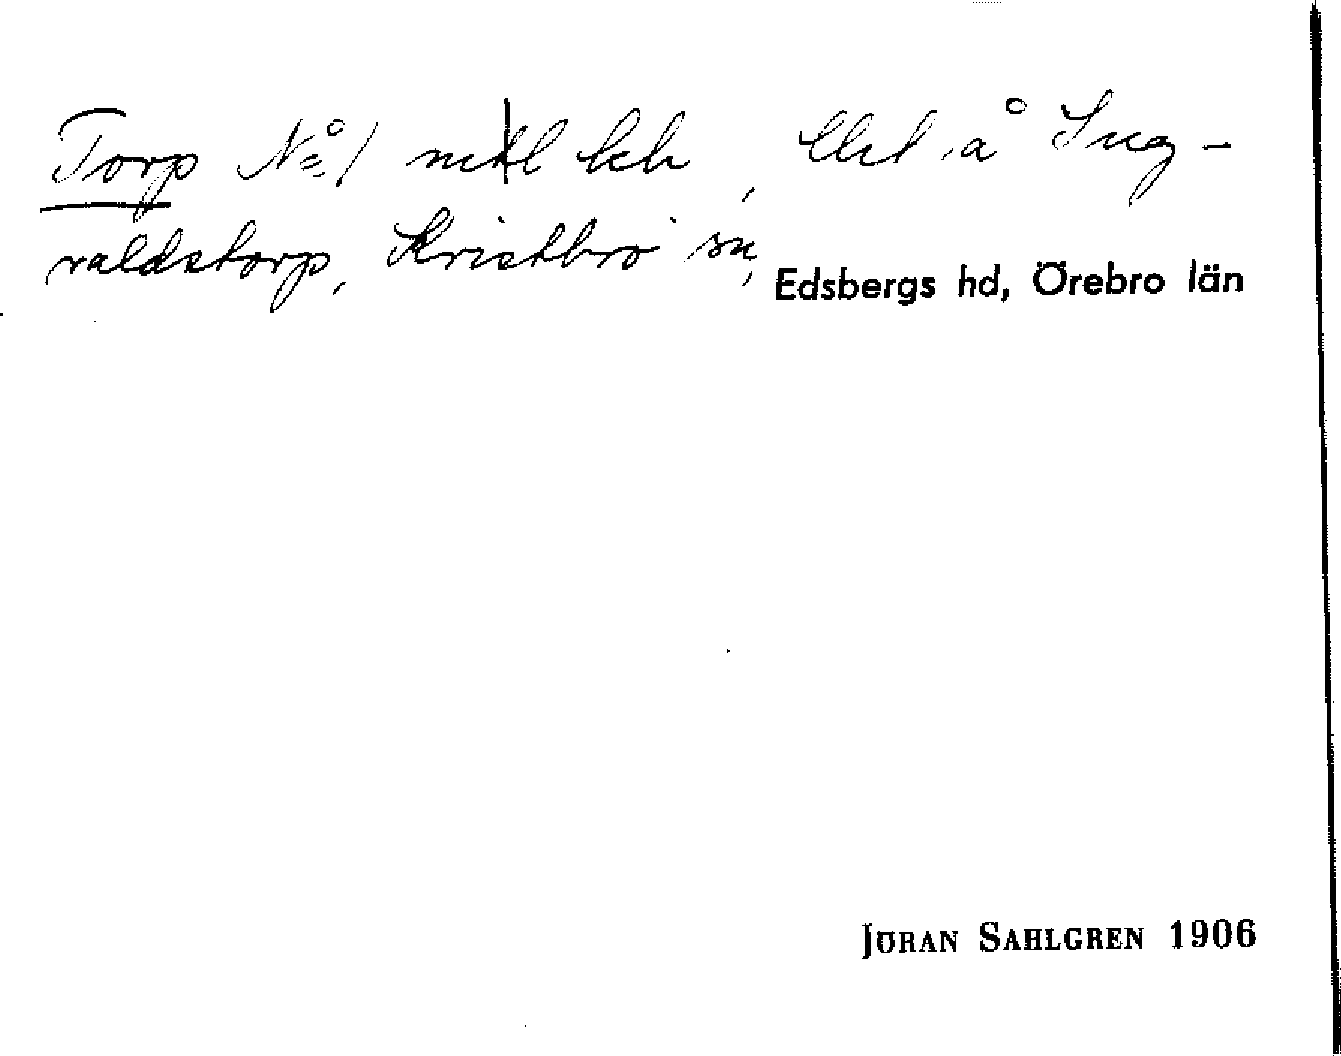 Torp No 1 mtl kh, Utl. å Ing-
valdstorp, Kristbro sn,
Edsbergs hd, Örebro län
JÖRAN SAHLGREN 1906